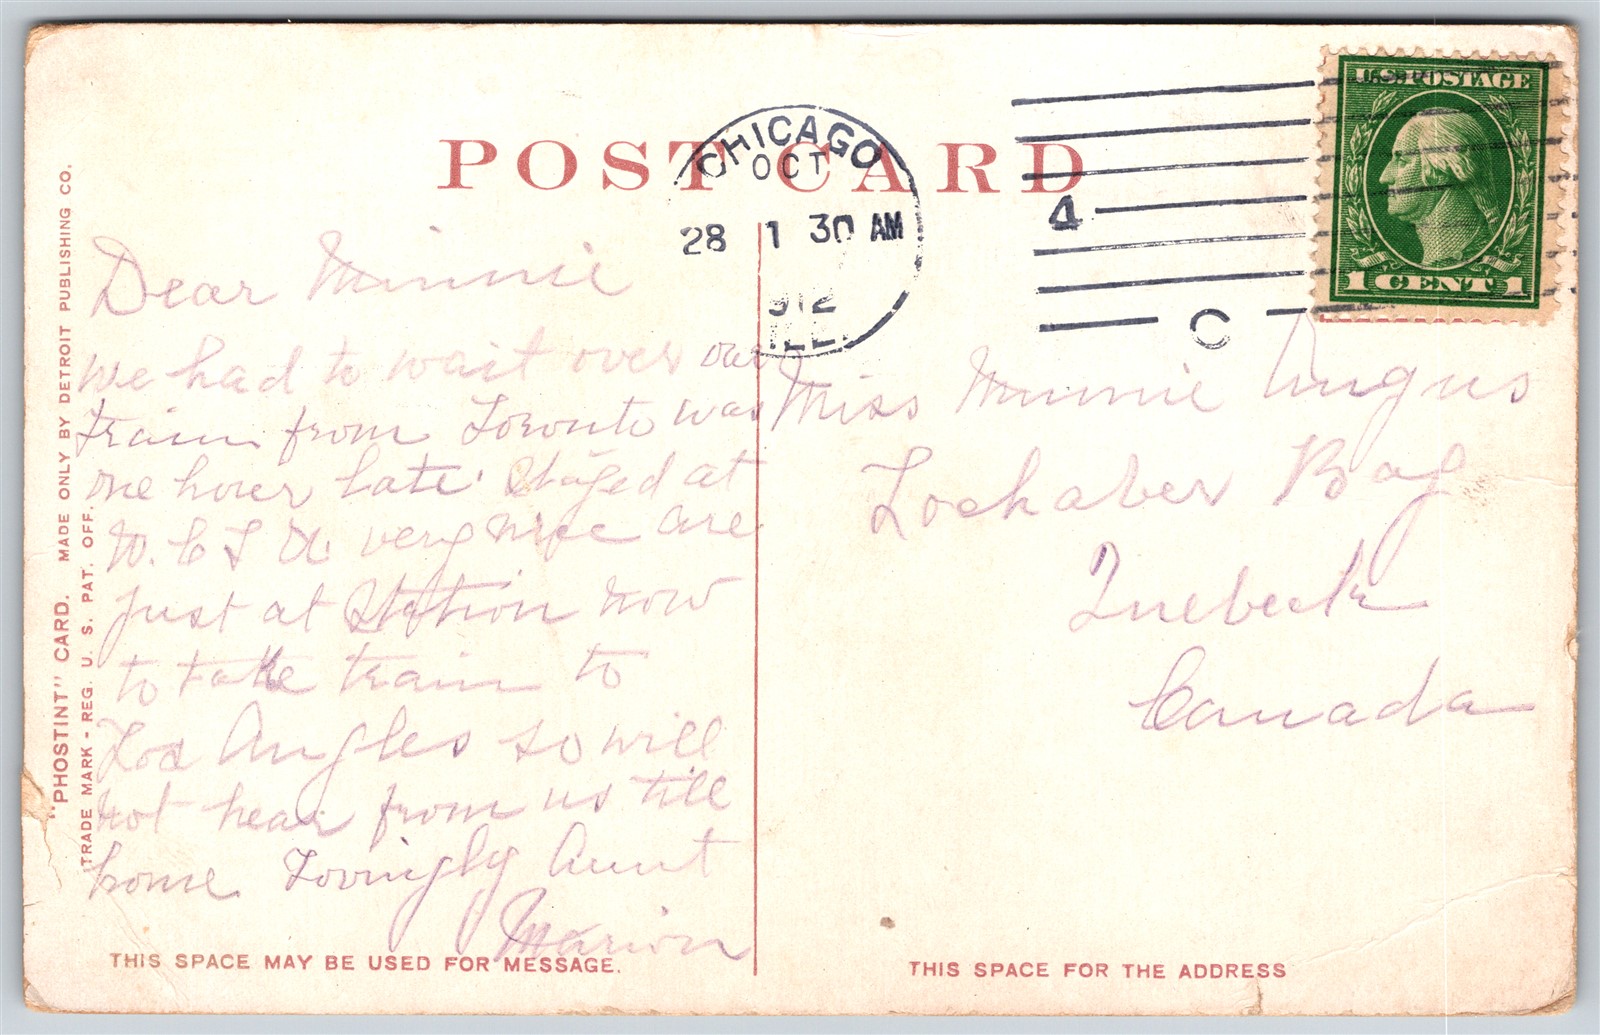 POST CARD
CHICAGO
OCT
28 1 30 AM
912
ILL.
4
C
U.S. POSTAGE
1 CENT 1
"PHOSTINT" CARD. MADE ONLY BY DETROIT PUBLISHING CO.
TRADE MARK - REG. U. S. PAT. OFF.
Dear Minnie
We had to wait over our
train from Toronto was
one hour late. Stayed at
W. C T U. very nice are
just at Station now
to take train to
Los Angles so will
not hear from us till
home Lovingly Aunt
Marion
Miss Minnie Angus
Lochaber Bay
Quebeck
Canada
THIS SPACE MAY BE USED FOR MESSAGE.
THIS SPACE FOR THE ADDRESS